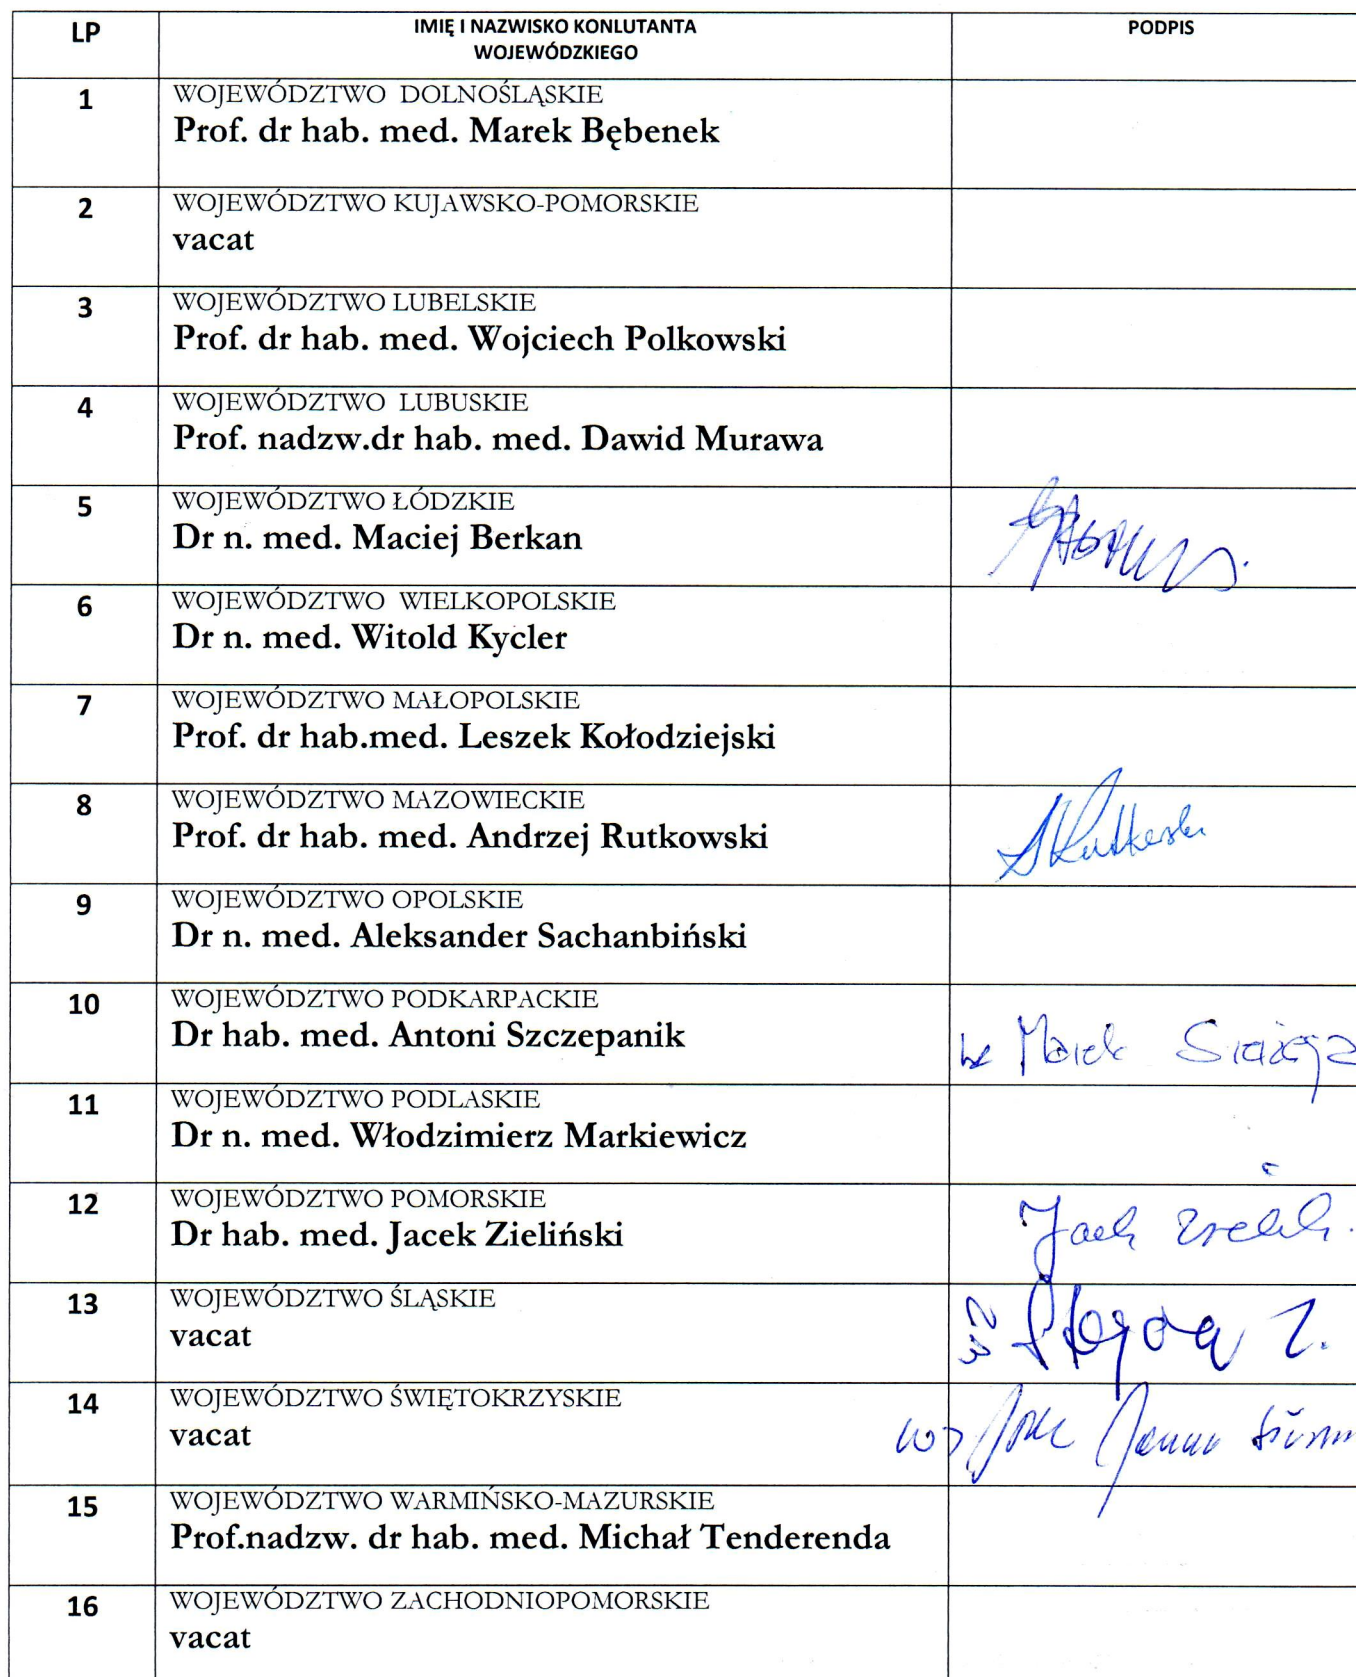 LP IMIĘ I NAZWISKO KONLUTANTA PODPIS
WOJEWÓDZKIEGO
1 WOJEWÓDZTWO DOLNOŚLĄSKIE
Prof. dr hab. med. Marek Bębenek
2 WOJEWÓDZTWO KUJAWSKO-POMORSKIE
vacat
3 WOJEWÓDZTWO LUBELSKIE
Prof. dr hab. med. Wojciech Polkowski
4 WOJEWÓDZTWO LUBUSKIE
Prof. nadzw.dr hab. med. Dawid Murawa
5 WOJEWÓDZTWO ŁÓDZKIE
Dr n. med. Maciej Berkan
6 WOJEWÓDZTWO WIELKOPOLSKIE
Dr n. med. Witold Kycler
7 WOJEWÓDZTWO MAŁOPOLSKIE
Prof. dr hab.med. Leszek Kołodziejski
8 WOJEWÓDZTWO MAZOWIECKIE
Prof. dr hab. med. Andrzej Rutkowski
9 WOJEWÓDZTWO OPOLSKIE
Dr n. med. Aleksander Sachanbiński
10 WOJEWÓDZTWO PODKARPACKIE
Dr hab. med. Antoni Szczepanik Marek
11 WOJEWÓDZTWO PODLASKIE
Dr n. med. Włodzimierz Markiewicz
12 WOJEWÓDZTWO POMORSKIE
Dr hab. med. Jacek Zieliński
13 WOJEWÓDZTWO ŚLĄSKIE
vacat
14 WOJEWÓDZTWO ŚWIĘTOKRZYSKIE
vacat
15 WOJEWÓDZTWO WARMIŃSKO-MAZURSKIE
Prof.nadzw. dr hab. med. Michał Tenderenda
16 WOJEWÓDZTWO ZACHODNIOPOMORSKIE
vacat